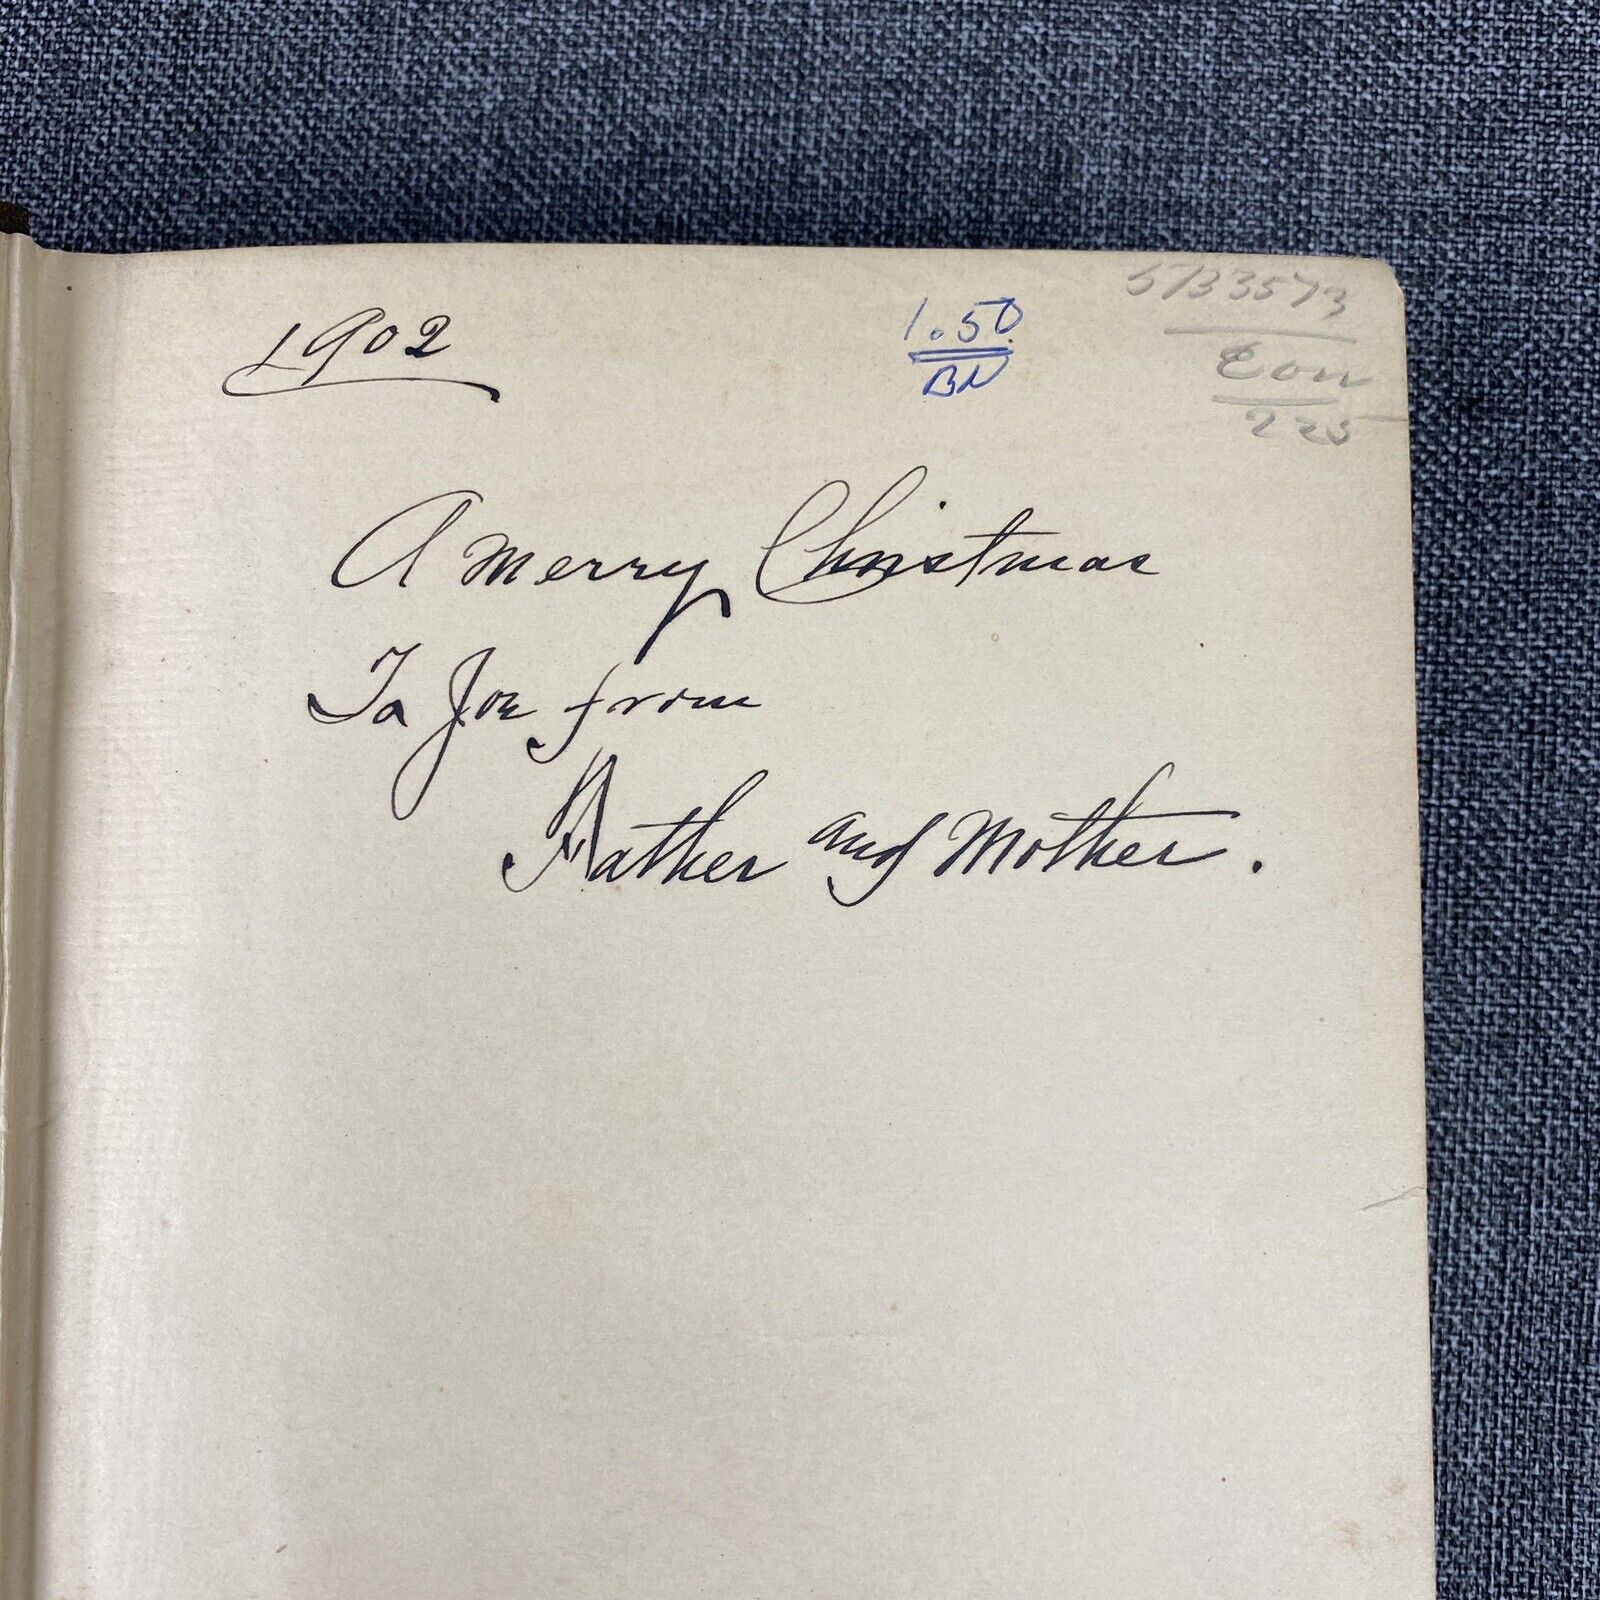 1902
1.50
BN
5733573
Eon
225
A Merry Christmas
To Joe from
Father and Mother.